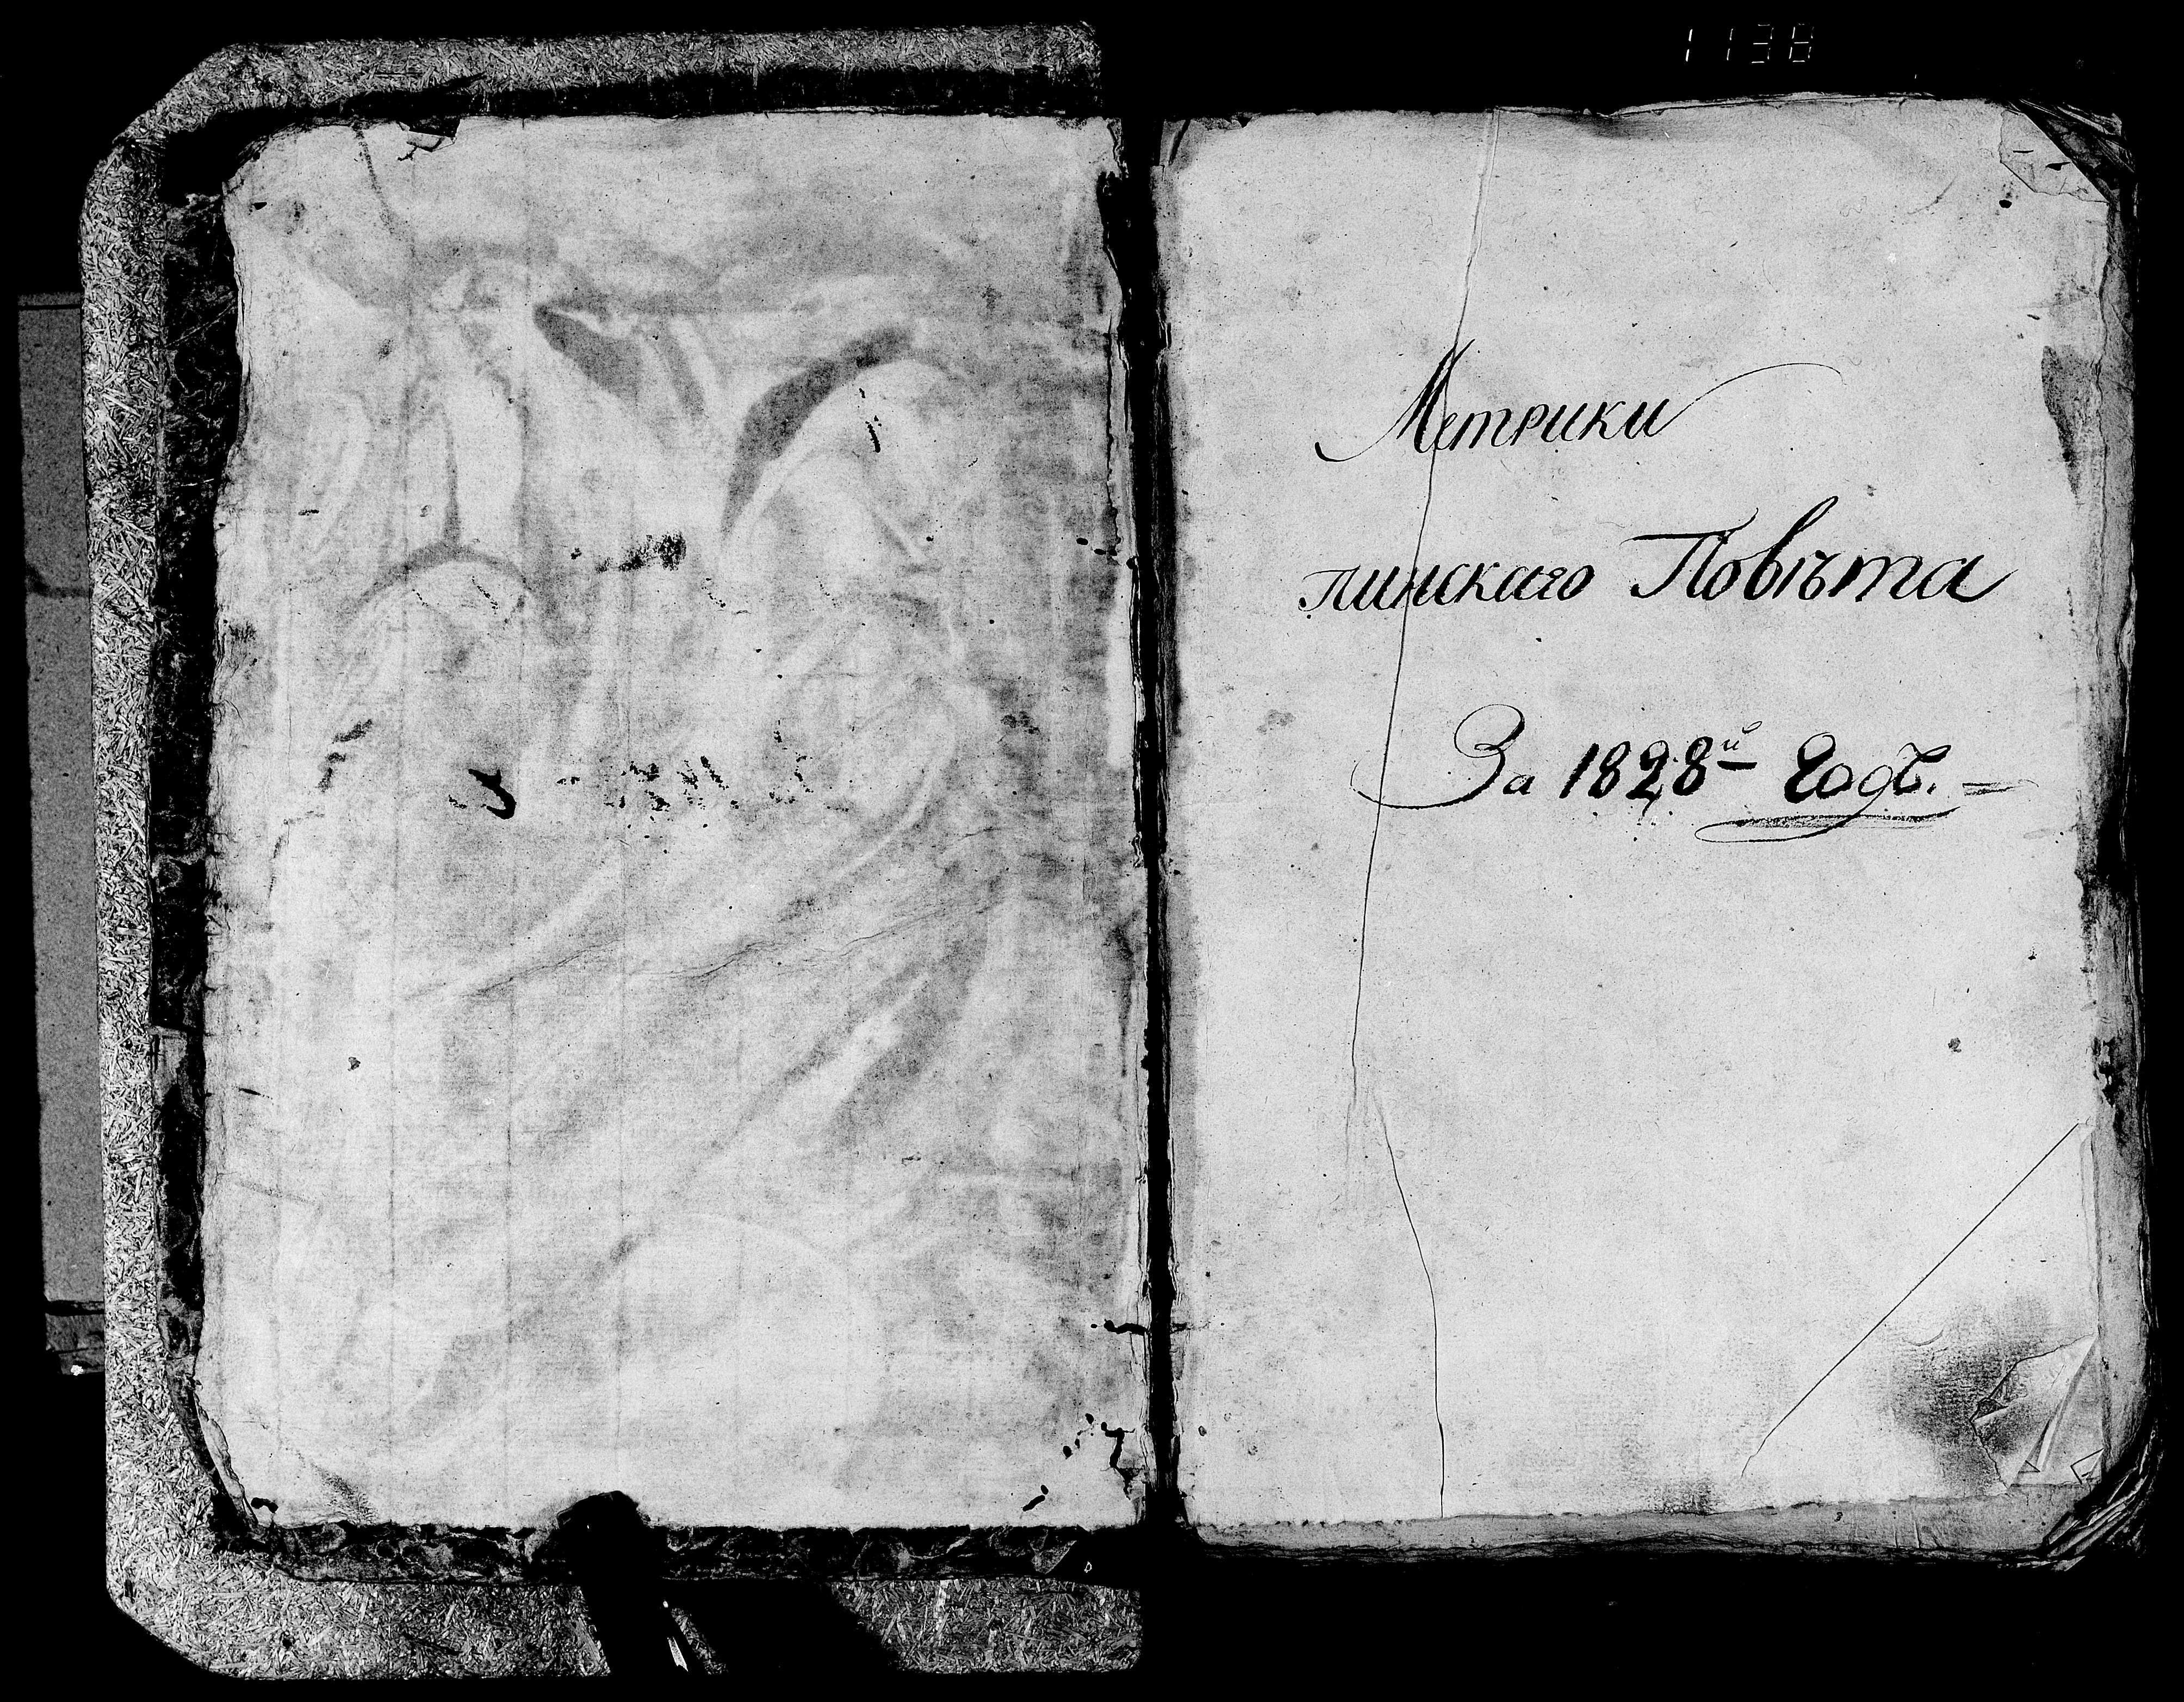 1138
Метрики
пинскаго Повѣта
За 1828й Годъ.